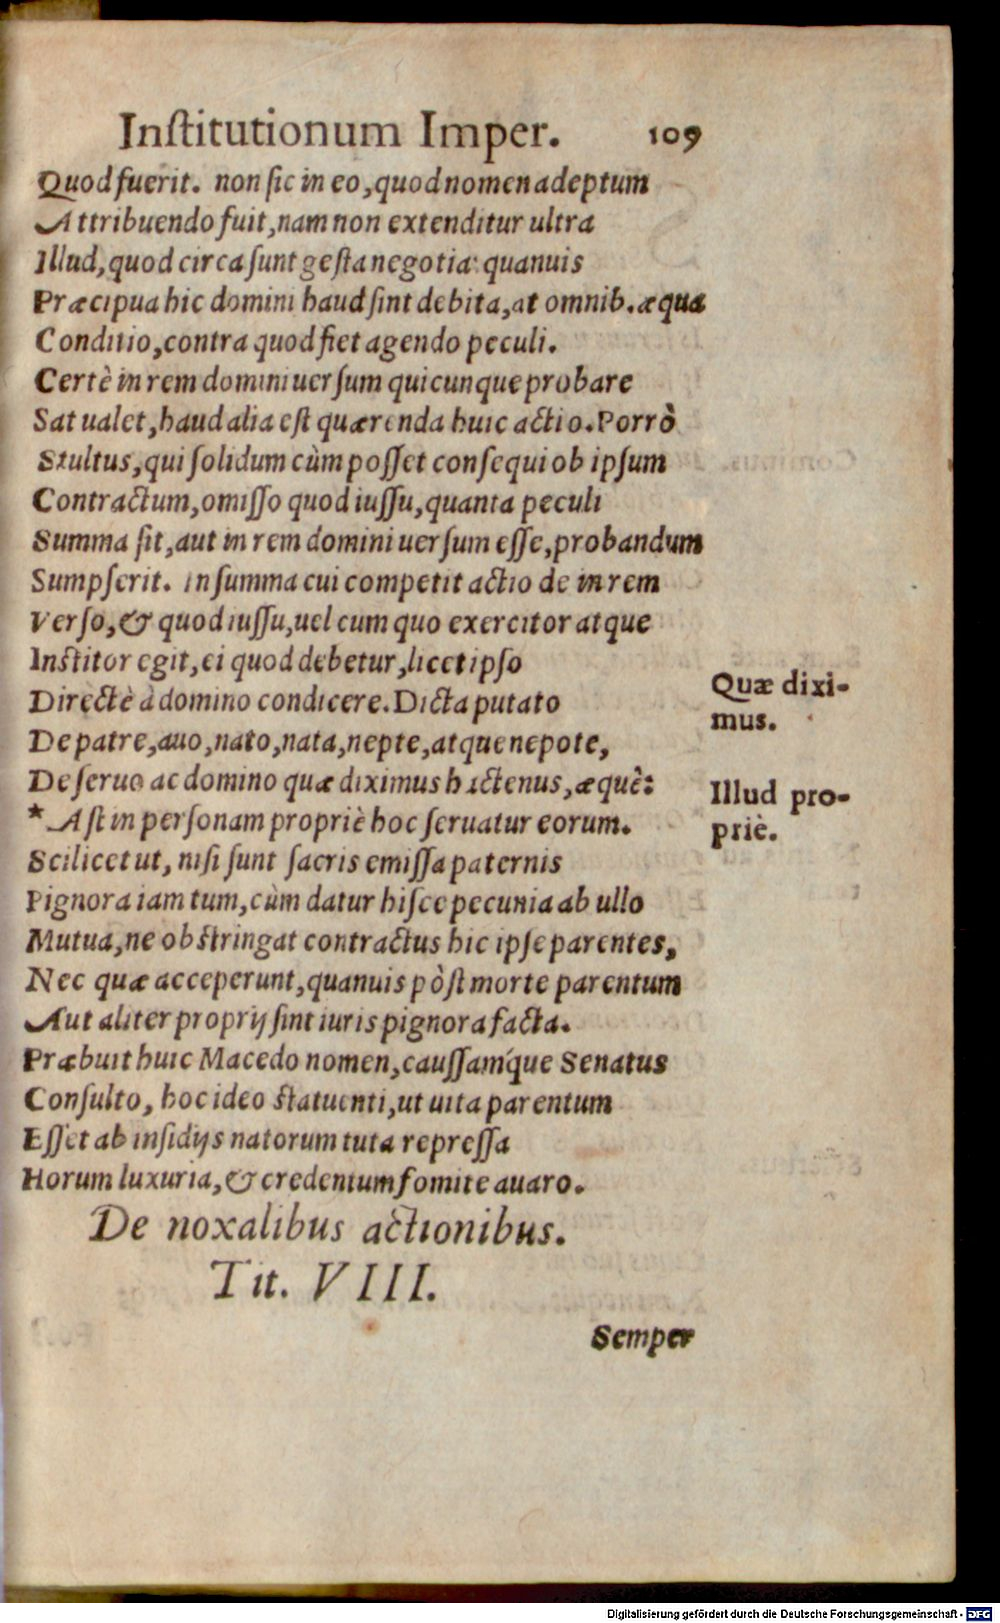 Inſtitutionum Imper. 109
Quod fuerit. non ſic in eo, quod nomen adeptum
Attribuendo fuit, nam non extenditur ultra
Illud, quod circa ſunt geſta negotia: quanuis
Præcipua hic domini haud ſint debita, at omnib. æqua
Conditio, contra quod fiet agendo peculi.
Certè in rem domini uerſum quicunque probare
Sat ualet, haud alia eſt quærenda huic actio. Porrò
Stultus, qui ſolidum cùm poſſet conſequi ob ipſum
Contractum, omiſſo quod iuſſu, quanta peculi
Summa ſit, aut in rem domini uerſum eſſe, probandum
Sumpſerit. in ſumma cui competit actio de in rem
Verſo, & quod iuſſu, uel cum quo exercitor atque
Inſtitor egit, ei quod debetur, licet ipſo
Directè à domino condicere. Dicta putato
Quæ dixi-
mus.
De patre, auo, nato, nata, nepte, atque nepote,
De ſeruo ac domino quæ diximus hactenus, æquè:
Illud pro-
priè.
* Aſt in perſonam propriè hoc ſeruatur eorum.
Scilicet ut, niſi ſunt ſacris emiſſa paternis
Pignora iam tum, cùm datur hiſce pecunia ab ullo
Mutua, ne obſtringat contractus hic ipſe parentes,
Nec quæ acceperunt, quanuis pòſt morte parentum
Aut aliter proprij ſint iuris pignora facta.
Præbuit huic Macedo nomen, cauſſam´que Senatus
Conſulto, hoc ideo ſtatuenti, ut uita parentum
Eſſet ab inſidijs natorum tuta repreſſa
Horum luxuria, & credentum fomite auaro.
De noxalibus actionibus.
Tit. VIII.
Semper
Digitalisierung gefördert durch die Deutsche Forschungsgemeinschaft - DFG